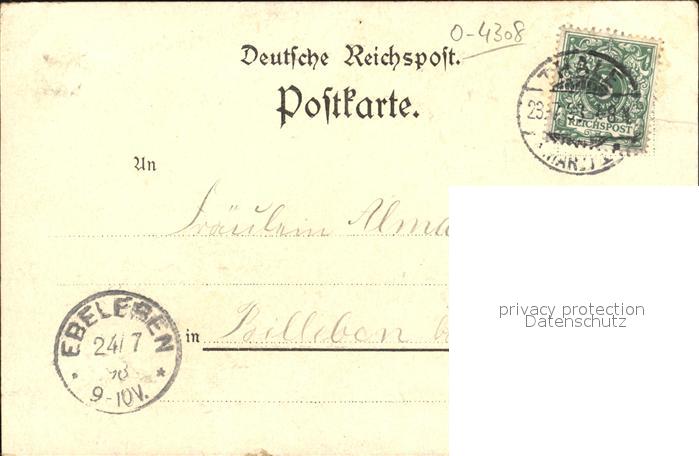 O-4308
Deutsche Reichspost.
Postkarte.
THALE
23.
REICHSPOST
(HARZ)
An
Fräulein Alma
privacy protection
Datenschutz
in Billeben b
EBELEBEN
24/7
98
9-10V.